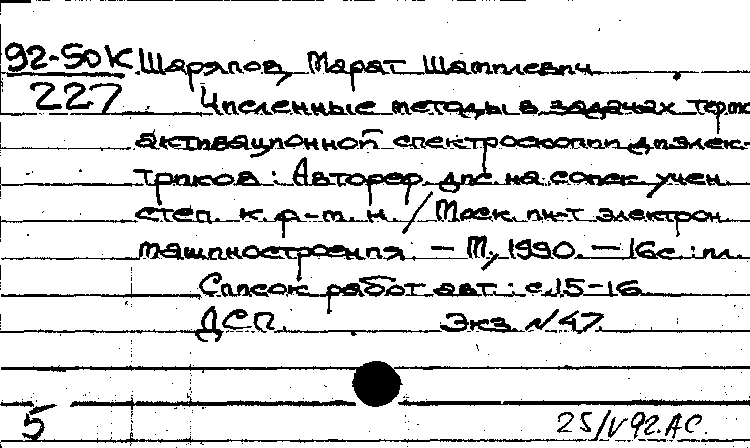 92-50К Шаряпов, Марат Шамилевич
227 Численные методы в задачах термо
активационной спектроскопии диэлек-
триков: Автореф. дис. на соиск. учен.
степ. к. ф.-м. н. / Моск. ин-т электрон.
машиностроения. - М., 1990. - 16с.: ил.
Список работ авт.: с.15-16
ДСП. Экз. N 47.
5 25/V 92. АС.